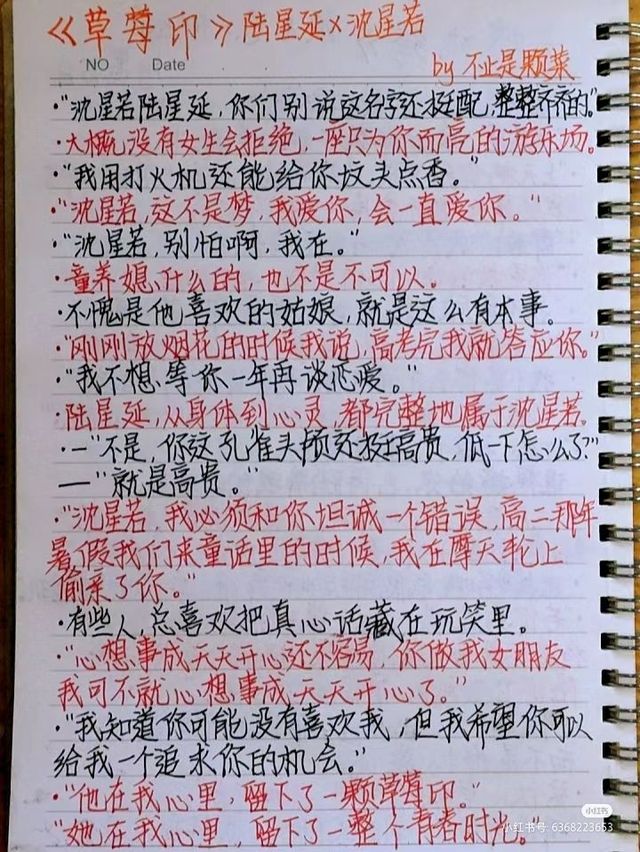 《草莓印》陆星延×沈星若
NO Date
by 不止是颗菜
·“沈星若陆星延,你们别说这名字还挺配,整整齐齐的。”
·大概没有女生会拒绝,一座只为你而亮的游乐场。
·“我用打火机还能给你坟头点香。”
·“沈星若,这不是梦,我爱你,会一直爱你。”
·“沈星若,别怕啊,我在。”
·童养媳什么的,也不是不可以。
·不愧是他喜欢的姑娘,就是这么有本事。
·“刚刚放烟花的时候我说,高考完我就答应你。”
·“我不想等你一年再谈恋爱。”
·陆星延,从身体到心灵,都完整地属于沈星若。
·—“不是,你这孔雀头颅还挺高贵,低一下怎么了?”
—“就是高贵。”
·“沈星若,我必须和你坦诚一个错误,高二那年
暑假我们来童话里的时候,我在摩天轮上
偷亲了你。”
·有些人总喜欢把真心话藏在玩笑里。
·“心想事成天天开心还不容易,你做我女朋友
我可不就心想事成天天开心了。”
·“我知道你可能没有喜欢我,但我希望你可以
给我一个追求你的机会。”
·“他在我心里,留下了一颗草莓印。”
“她在我心里,留下了一整个青春时光。”
小红书
小红书号: 6368223653